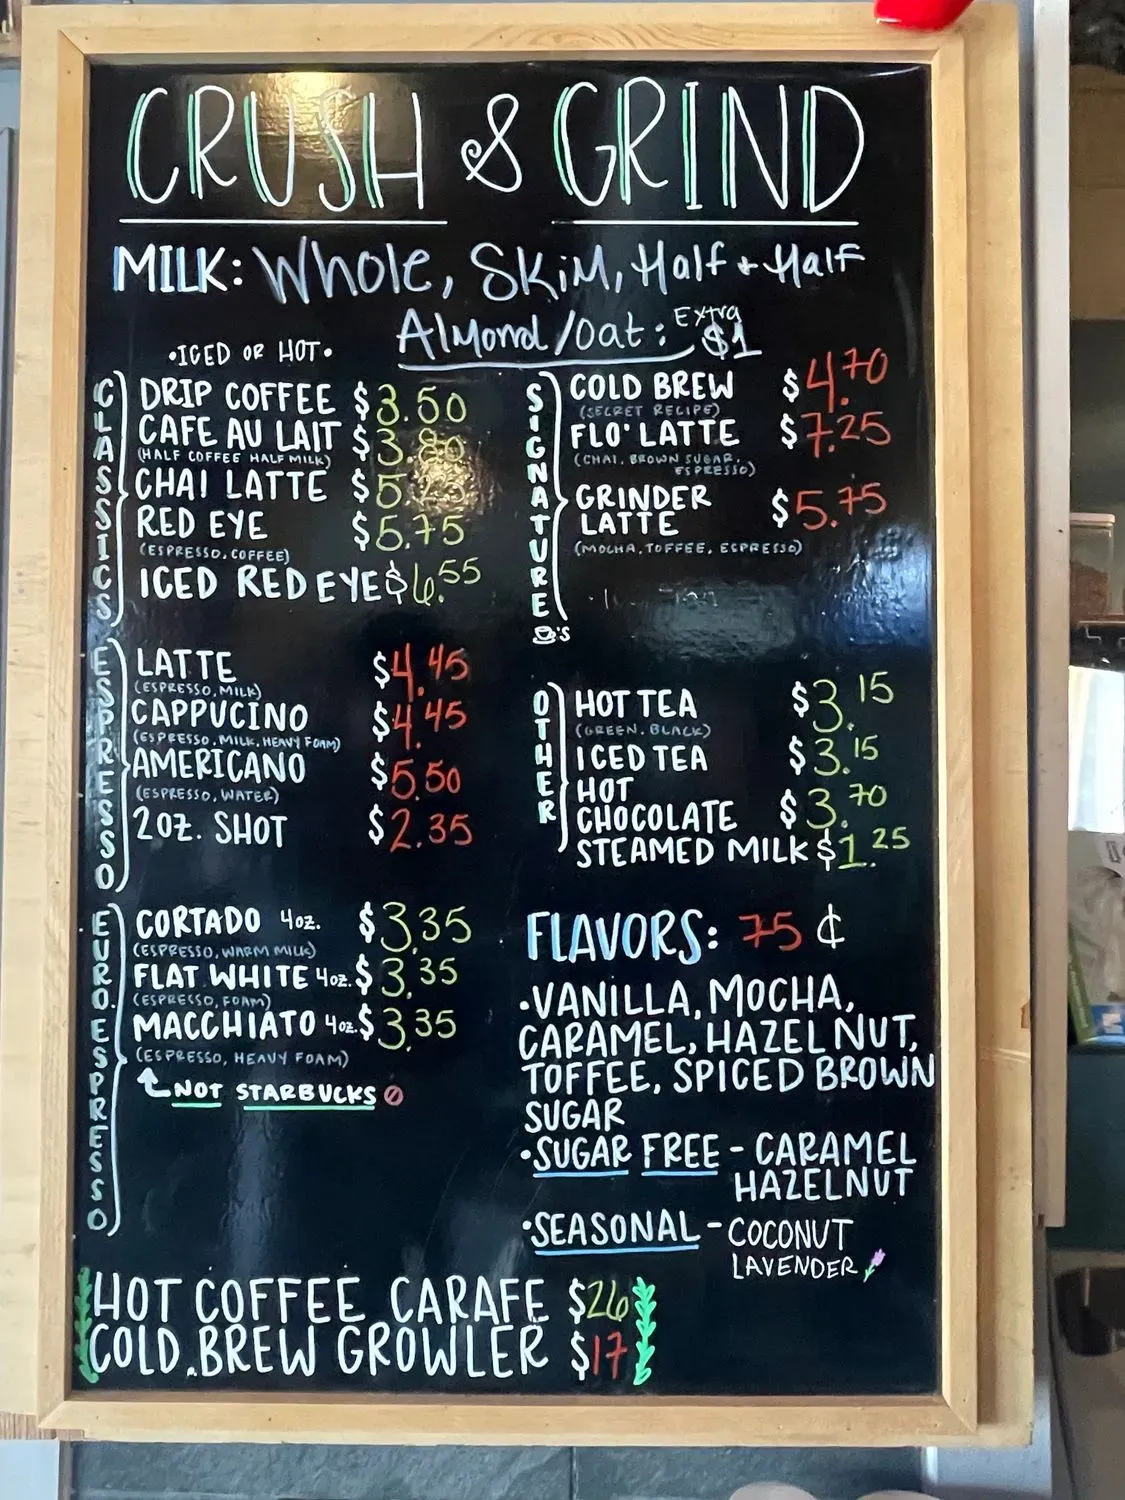 CRUSH & GRIND
MILK: Whole, SKiM, Half + Half
Almond/Oat: Extra $1
•ICED OR HOT•
CLASSICS
DRIP COFFEE $3.50
CAFE AU LAIT $3.80
(HALF COFFEE HALF MILK)
CHAI LATTE $5.
RED EYE $5.75
(ESPRESSO, COFFEE)
ICED RED EYE $6.55
ESPRESSO
LATTE $4.45
(ESPRESSO, MILK)
CAPPUCINO $4.45
(ESPRESSO, MILK, HEAVY FOAM)
AMERICANO $5.50
(ESPRESSO, WATER)
2OZ. SHOT $2.35
EURO. ESPRESSO
CORTADO 4oz. $3.35
(ESPRESSO, WARM MILK)
FLAT WHITE 4oz. $3.35
(ESPRESSO, FOAM)
MACCHIATO 4oz. $3.35
(ESPRESSO, HEAVY FOAM)
NOT STARBUCKS
SIGNATURE 's
COLD BREW $4.70
(SECRET RECIPE)
FLO' LATTE $7.25
(CHAI, BROWN SUGAR,
ESPRESSO)
GRINDER
LATTE $5.75
(MOCHA, TOFFEE, ESPRESSO)
OTHER
HOT TEA $3.15
(GREEN, BLACK)
ICED TEA $3.15
HOT
CHOCOLATE $3.70
STEAMED MILK $1.25
FLAVORS: 75¢
•VANILLA, MOCHA,
CARAMEL, HAZELNUT,
TOFFEE, SPICED BROWN
SUGAR
•SUGAR FREE - CARAMEL
HAZELNUT
•SEASONAL - COCONUT
LAVENDER
HOT COFFEE CARAFE $26
COLD BREW GROWLER $17